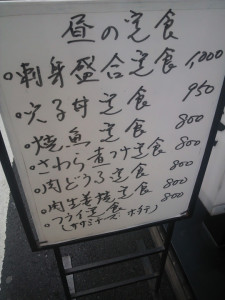 昼の定食
○刺身盛合定食 1,000
○穴子丼定食 950
○焼魚定食 800
○さわら煮つけ定食 800
○肉どうふ定食 800
○肉生姜焼定食 800
○フライ定食 800
(ササミチーズ・ポテト)